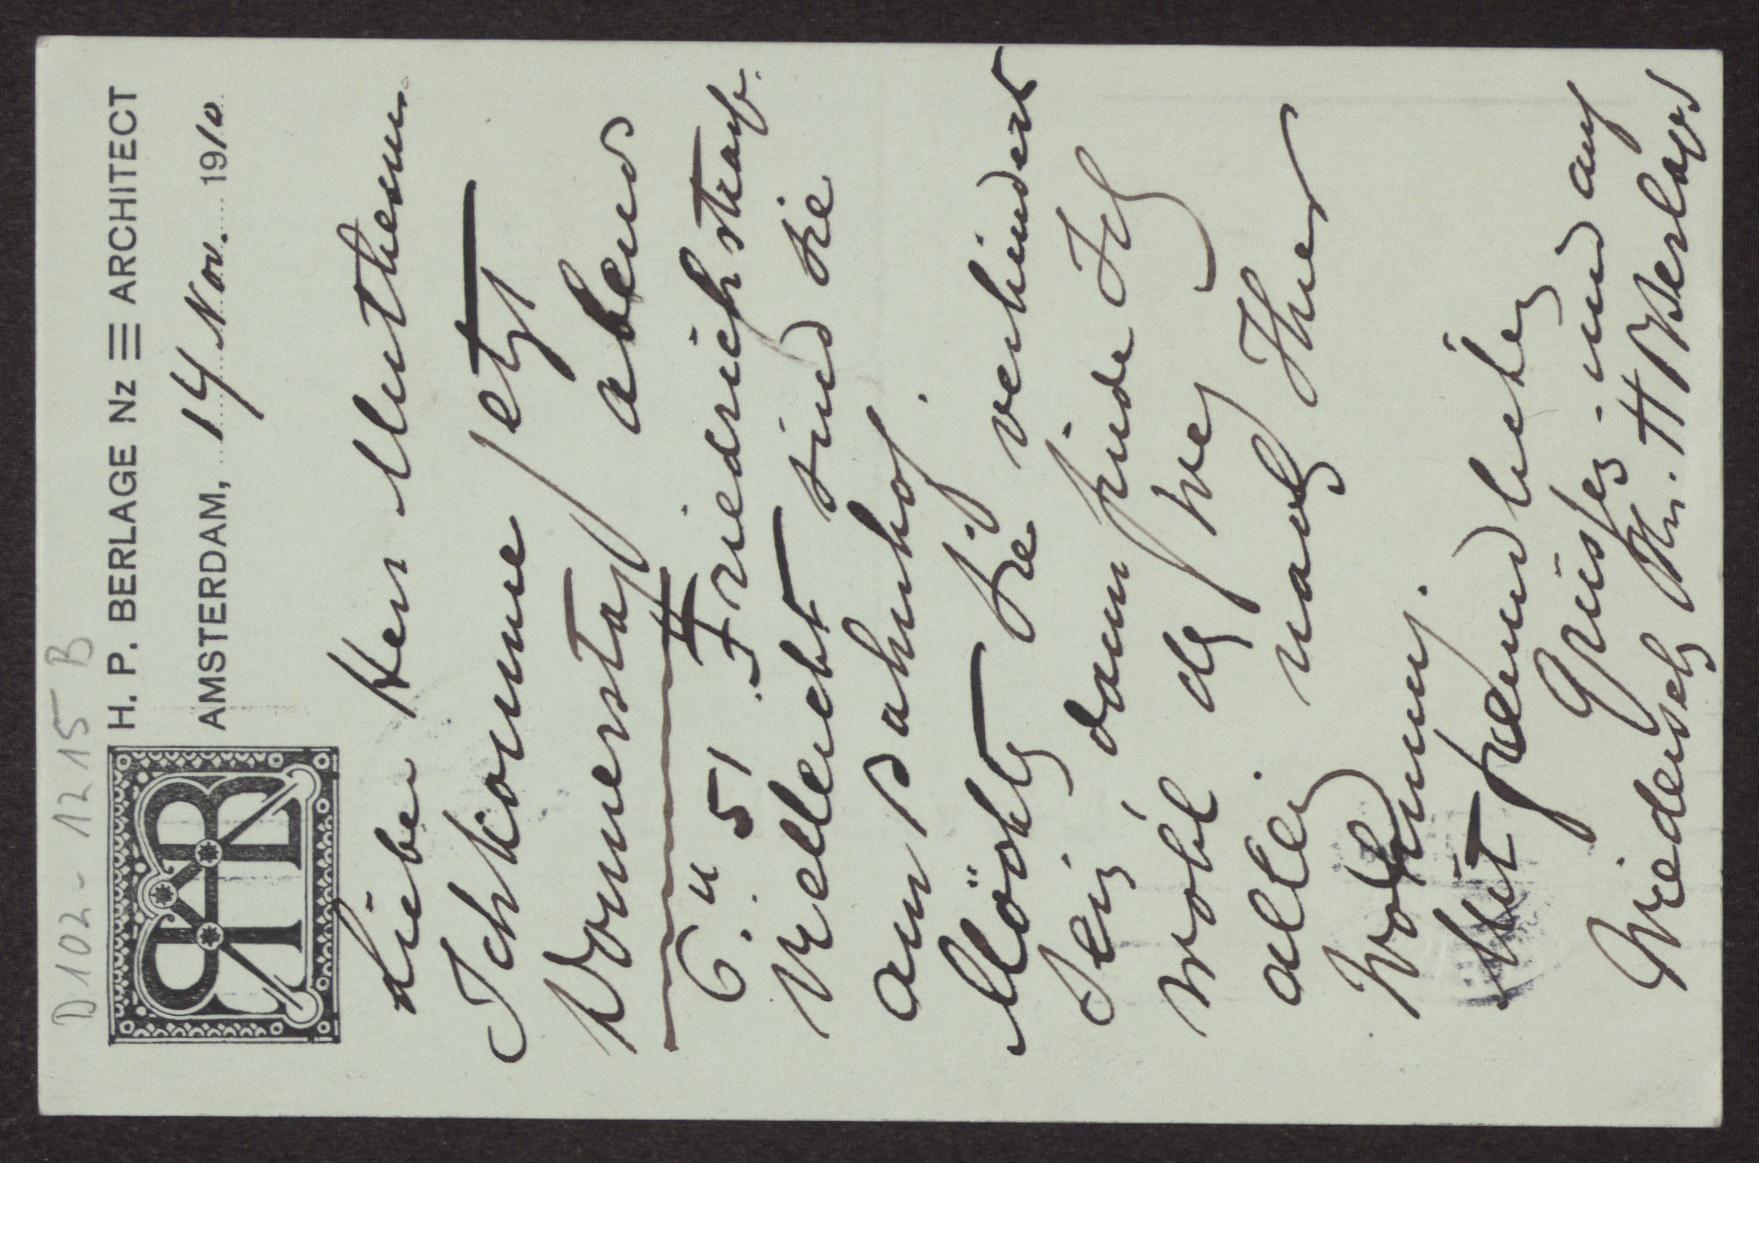 D102-1215 B
H. P. BERLAGE Nz ≡ ARCHITECT
AMSTERDAM, 14 Nov. 1910
Lieber Herr Muthesius
Ich komme jetzt
Donnerstag abend
6 u 51 Friedrichstrasse.
Vielleicht sind Sie
am Bahnhof.
Möchten Sie verhindert
sein dann finde Ich
wohl den Weg
allein nach Ihrer
Wohnung.
Mit freundlichen
Grüssen und auf
Wiedersehen Ihr. HP Berlage